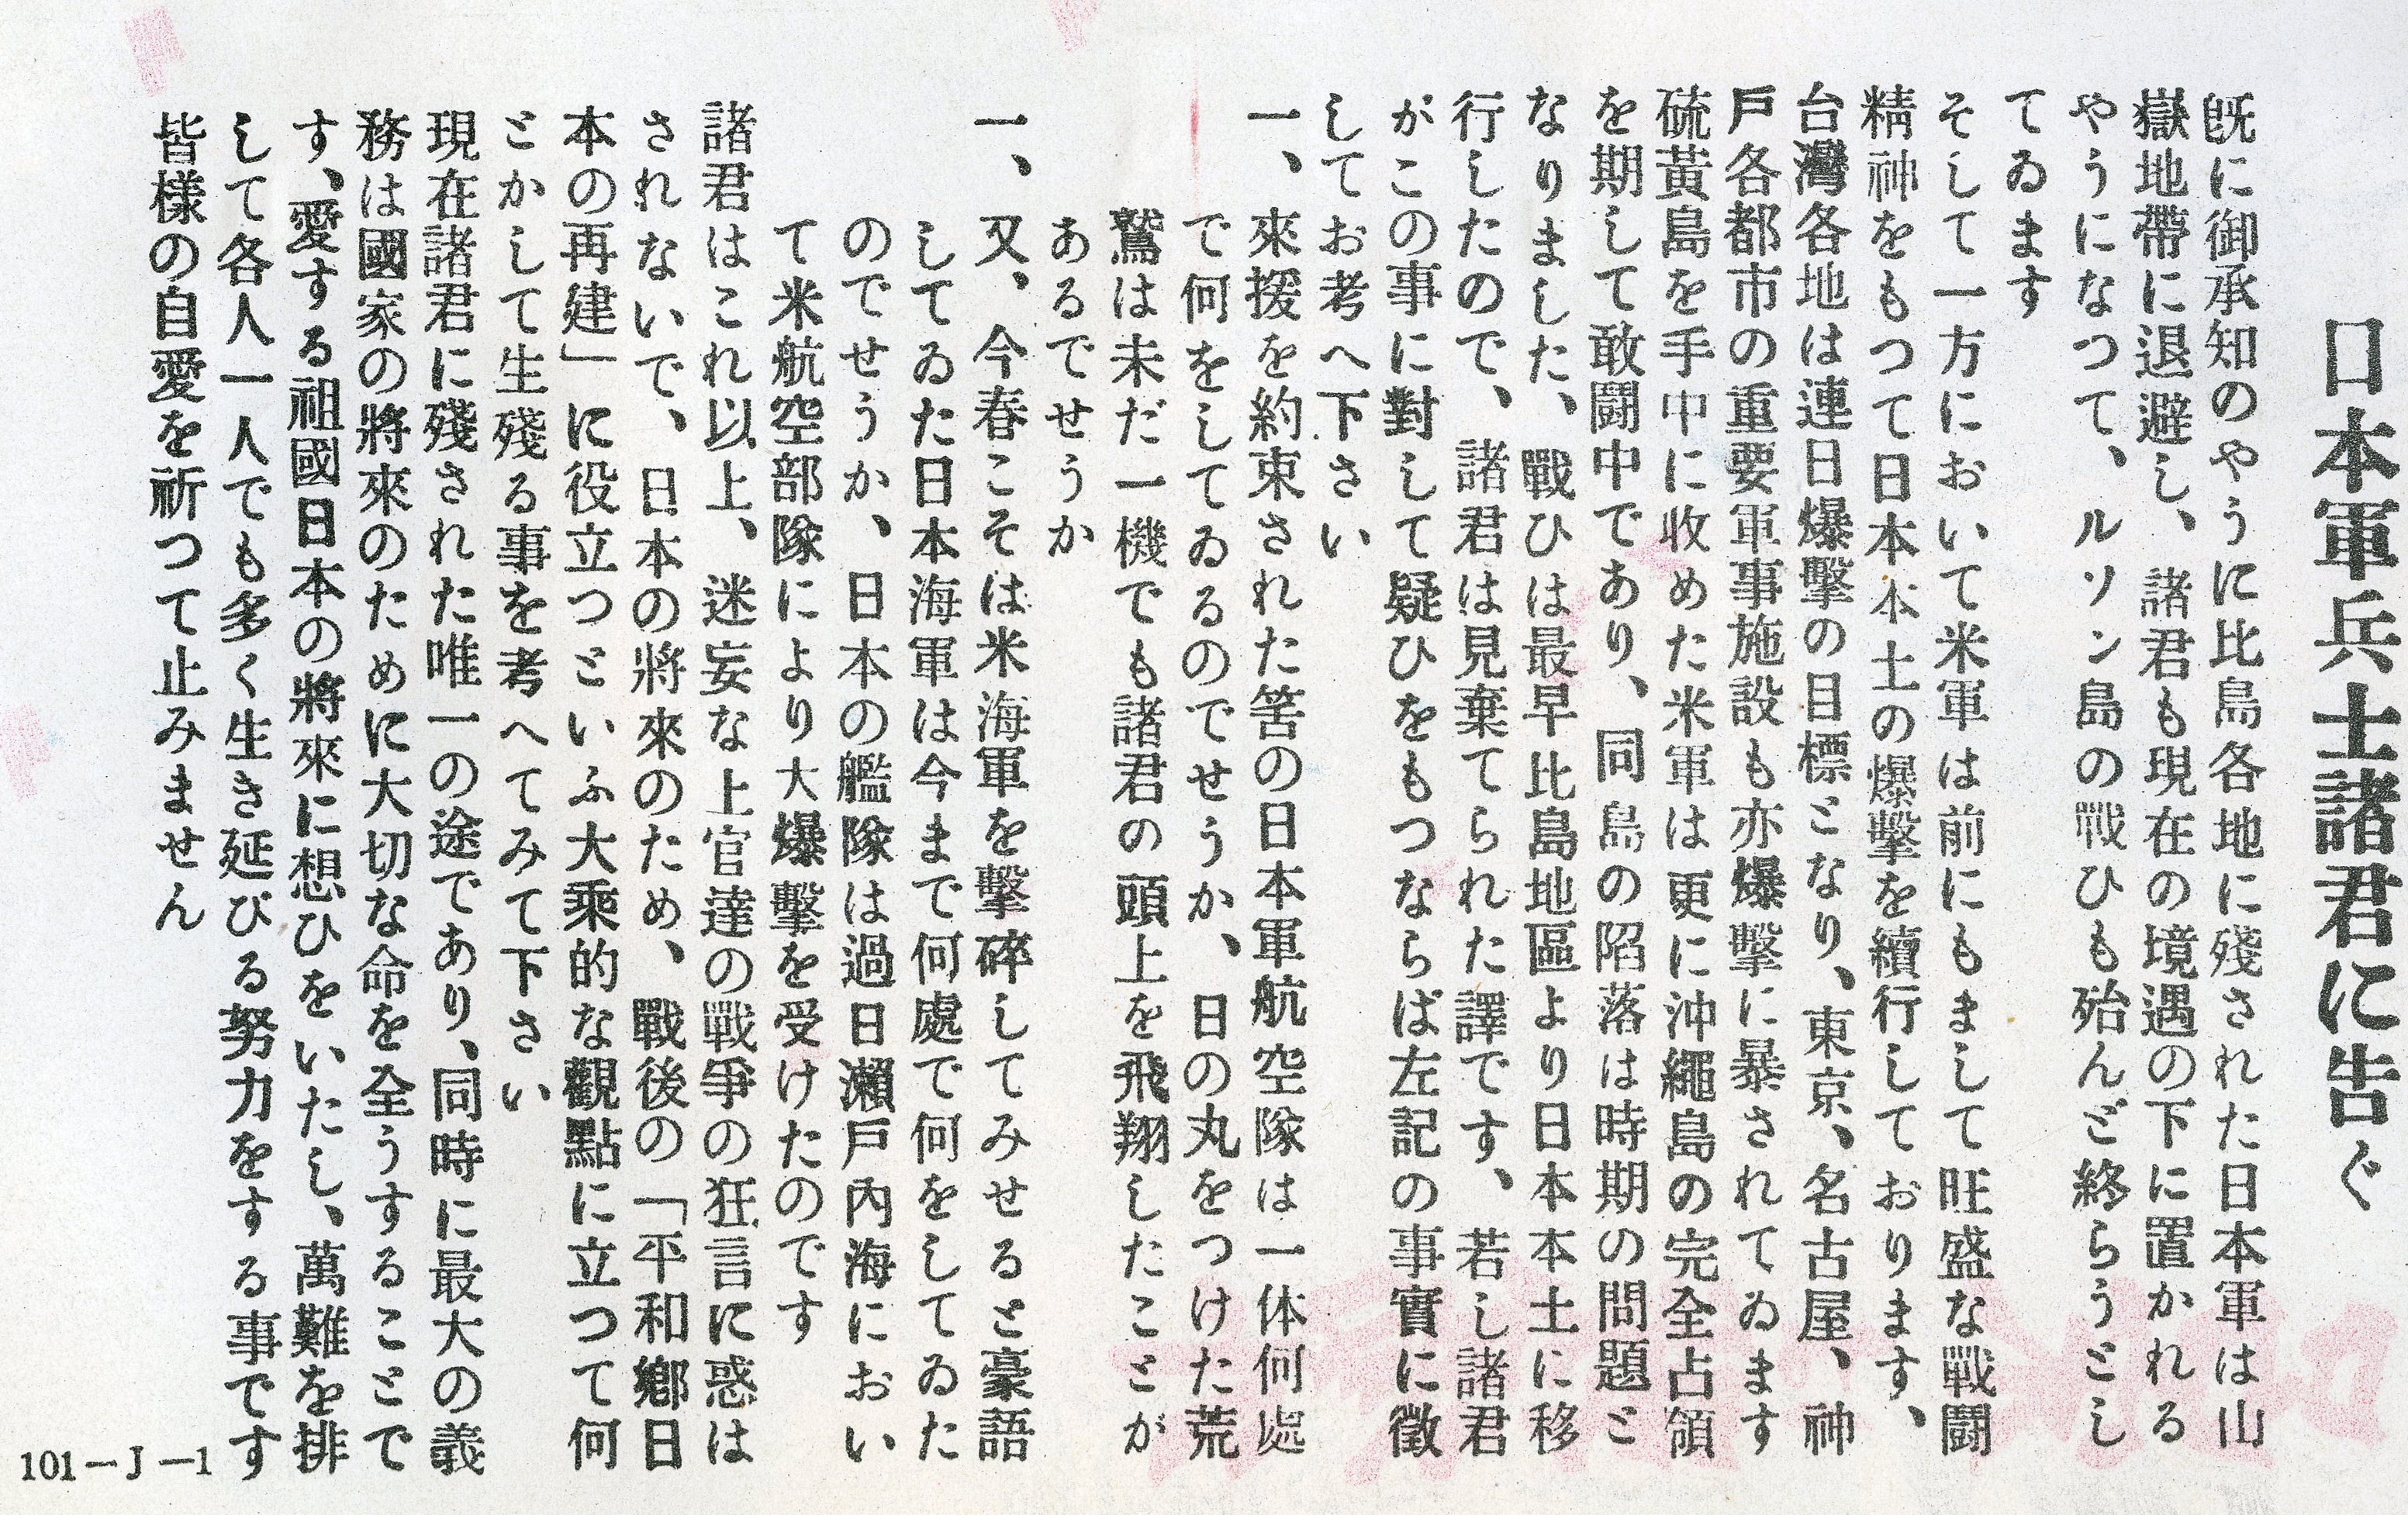 日本軍兵士諸君に告ぐ
既に御承知のやうに比島各地に殘された日本軍は山
嶽地帶に退避し、諸君も現在の境遇の下に置かれる
やうになつて、ルソン島の戦ひも殆んど終らうとし
てゐます
そして一方において米軍は前にもまして旺盛な戦闘
精神をもつて日本本土の爆擊を續行しております、
台灣各地は連日爆擊の目標となり、東京、名古屋、神
戶各都市の重要軍事施設も亦爆擊に暴されてゐます
硫黃島を手中に收めた米軍は更に沖繩島の完全占領
を期して敢闘中であり、同島の陷落は時期の問題と
なりました、戰ひは最早比島地區より日本本土に移
行したので、諸君は見棄てられた譯です、若し諸君
がこの事に對して疑ひをもつならば左記の事實に徵
してお考へ下さい
一、來援を約束された筈の日本軍航空隊は一体何処
で何をしてゐるのでせうか、日の丸をつけた荒
鷲は未だ一機でも諸君の頭上を飛翔したことが
あるでせうか
一、又、今春こそは米海軍を擊碎してみせると豪語
してゐた日本海軍は今まで何處で何をしてゐた
のでせうか、日本の艦隊は過日瀨戶內海におい
て米航空部隊により大爆擊を受けたのです
諸君はこれ以上、迷妄な上官達の戰爭の狂言に惑は
されないで、日本の將來のため、戰後の「平和鄉日
本の再建」に役立つといふ大乘的な觀點に立つて何
とかして生殘る事を考へてみて下さい
現在諸君に殘された唯一の途であり、同時に最大の義
務は國家の將來のために大切な命を全うすることで
す、愛する祖國日本の將來に想ひをいたし、萬難を排
して各人一人でも多く生き延びる努力をする事です
皆樣の自愛を祈つて止みません
101-J-1